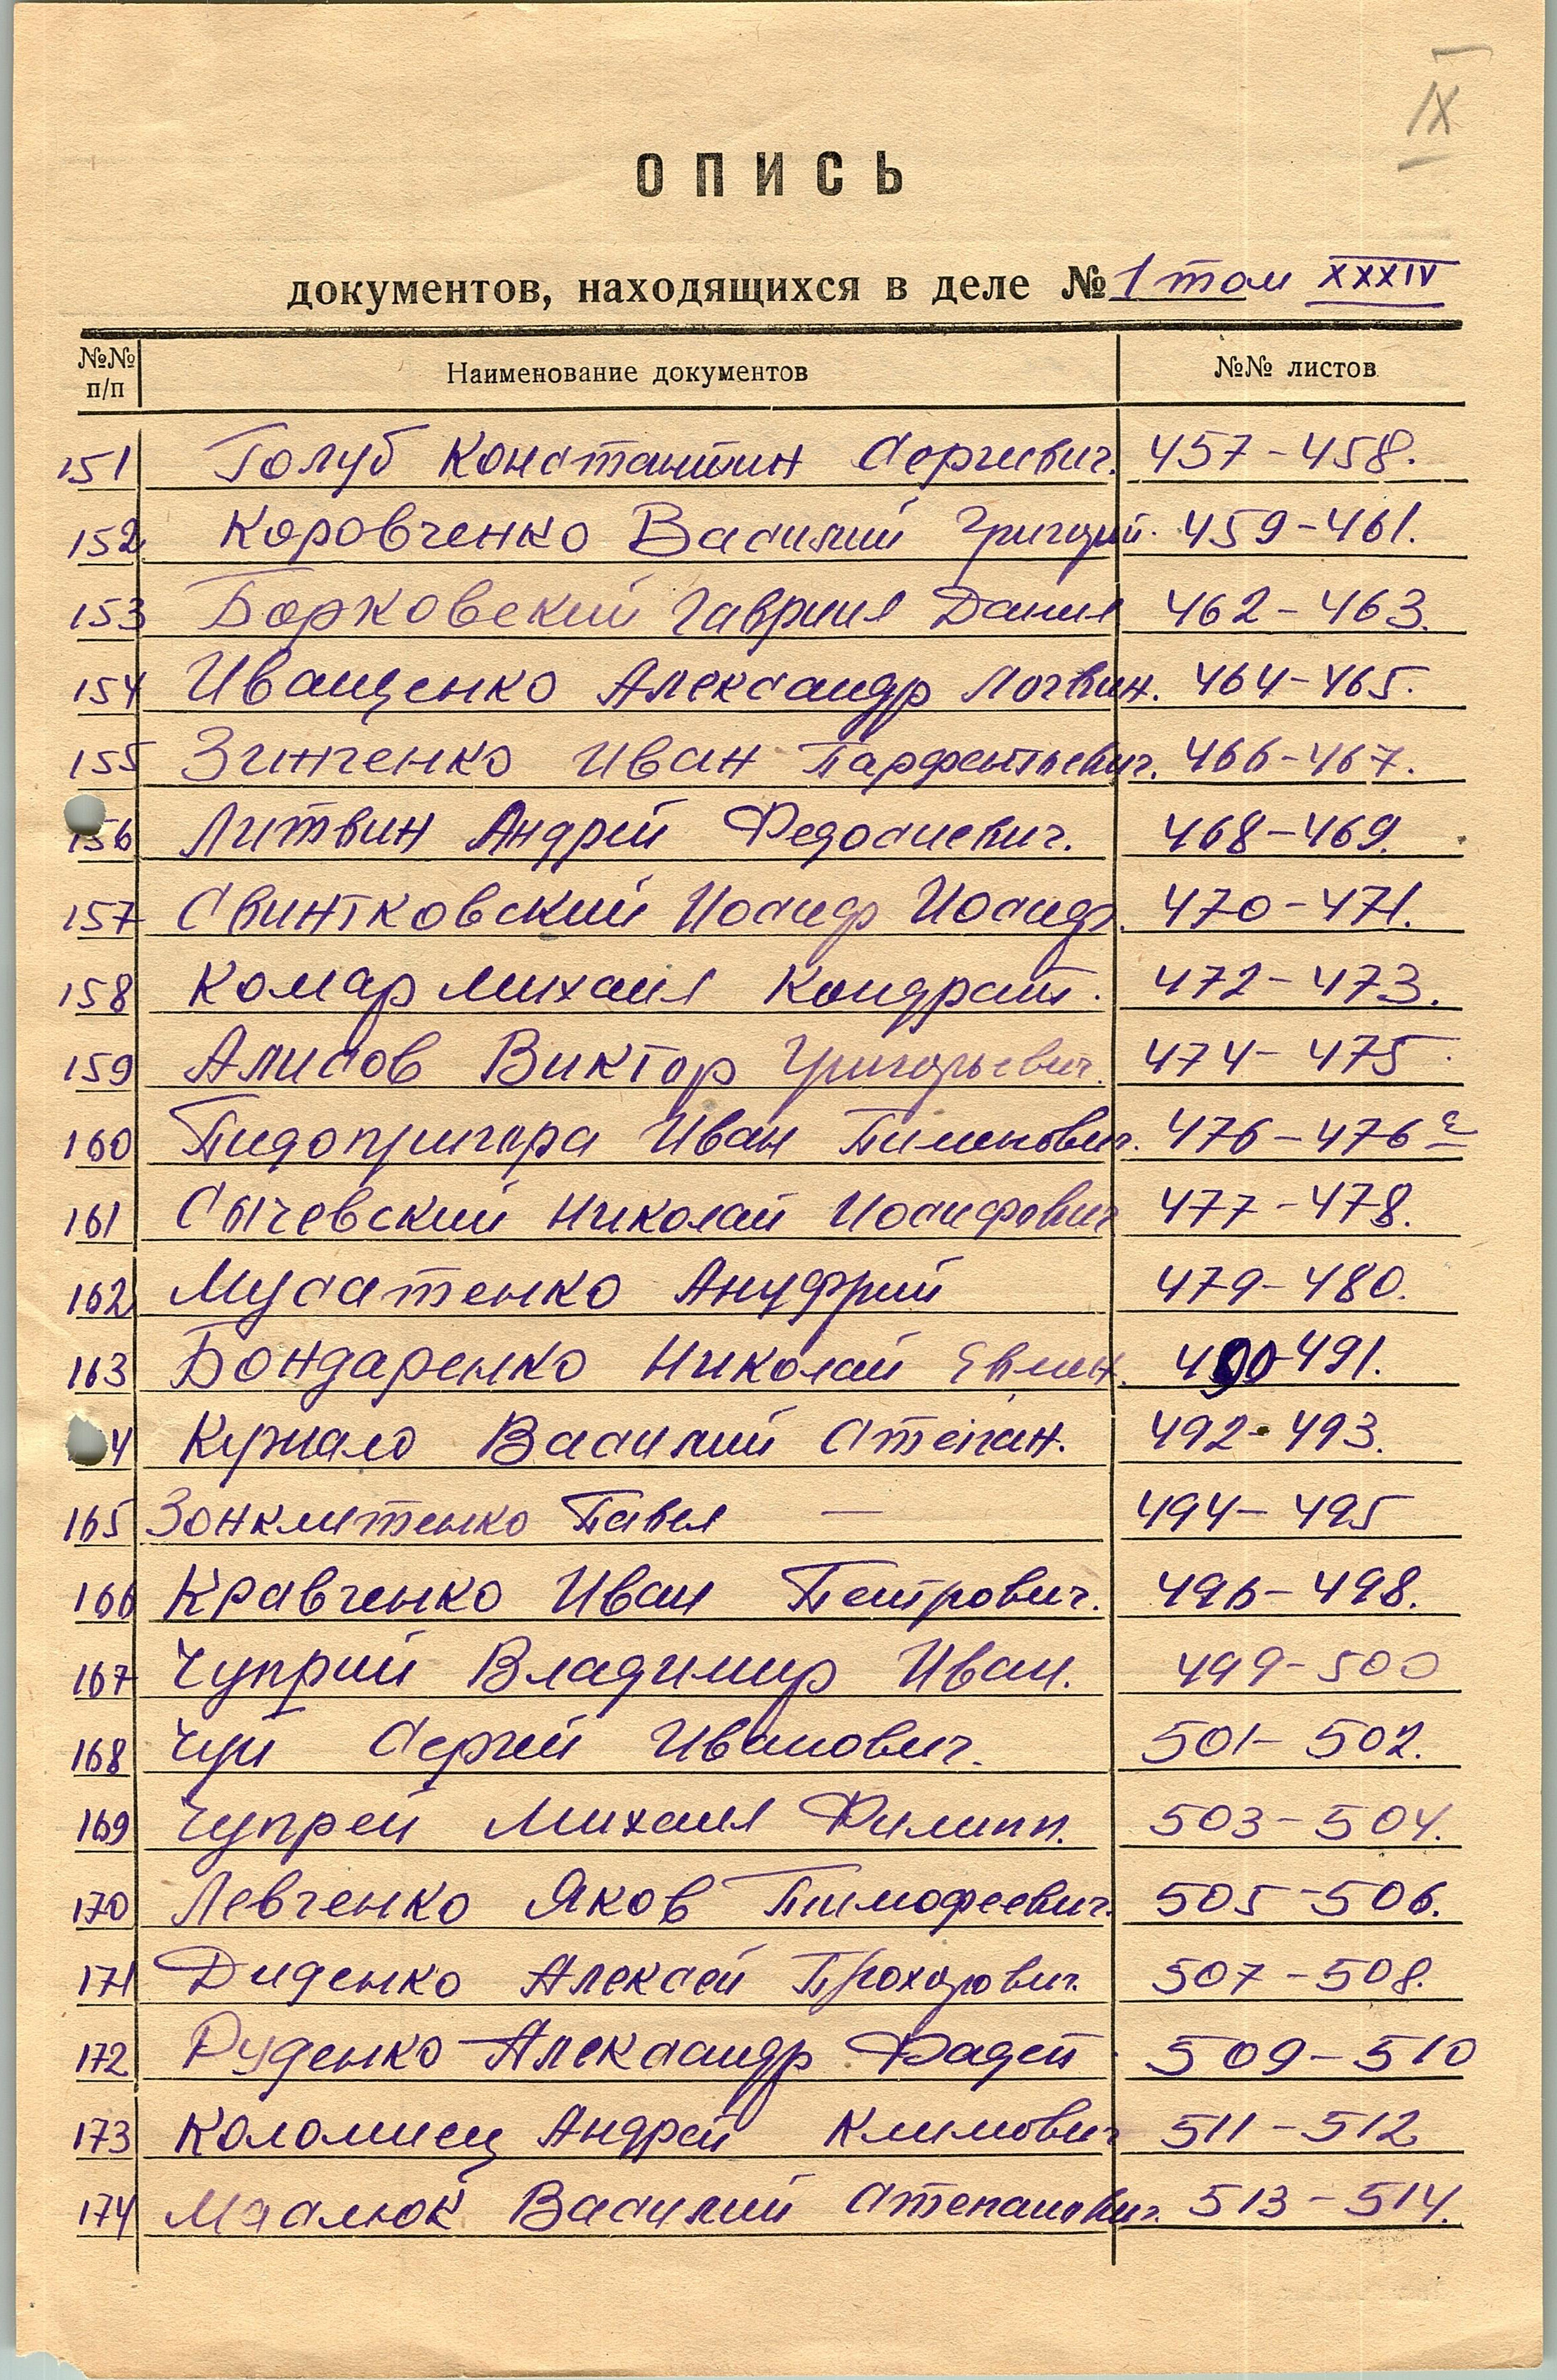 IX
ОПИСЬ
документов, находящихся в деле № 1 том XXXIV
№№ п/п Наименование документов №№ листов
151 Голуб Константин Сергиевич. 457-458.
152. Коровченко Василий Григорий. 459-461.
153 Борковский Гавриил Данил 462-463.
154 Иващенко Александр Логвин. 464-465.
155 Зинченко Иван Парфентьевич. 466-467.
156 Литвин Андрей Федосиевич. 468-469.
157 Свинтковский Иосиф Иосиф. 470-471.
158 Комар Михаил Кондрат. 472-473.
159 Алисов Виктор Григорьевич. 474-475.
160 Пидопригора Иван Пименович. 476-476 г
161 Сычевский Николай Иосифович 477-478.
162 Мусатенко Ануфрий 479-480.
163 Бондаренко Николай 490-491.
4 Василий Степан. 492-493.
165 Павел — 494-495
166 Кравченко Иван Петрович. 496-498.
167 Чуприй Владимир Иван. 499-500
168 Чуй Сергей Иванович. 501-502.
169 Чупрей Михаил Филипп. 503-504.
170 Левченко Яков Тимофеевич. 505-506.
171 Диденко Алексей Прохорович. 507-508.
172 Руденко Александр Фадей. 509-510
173 Коломиец Андрей Климович 511-512
174 Маслюк Василий Степанович. 513-514.